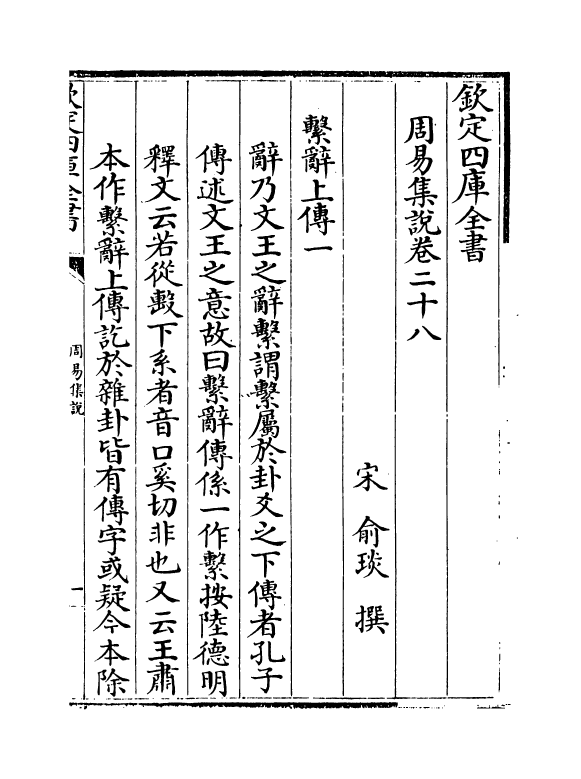 欽定四庫全書
周易集說卷二十八
宋 俞琰 撰
繫辭上傳一
辭乃文王之辭繫謂繫屬於卦爻之下傳者孔子
傳述文王之意故曰繫辭傳係一作繫按陸德明
釋文云若從毄下系者音口奚切非也又云王肅
本作繫辭上傳訖於雜卦皆有傳字或疑今本除
欽定四庫全書
周易集說
一